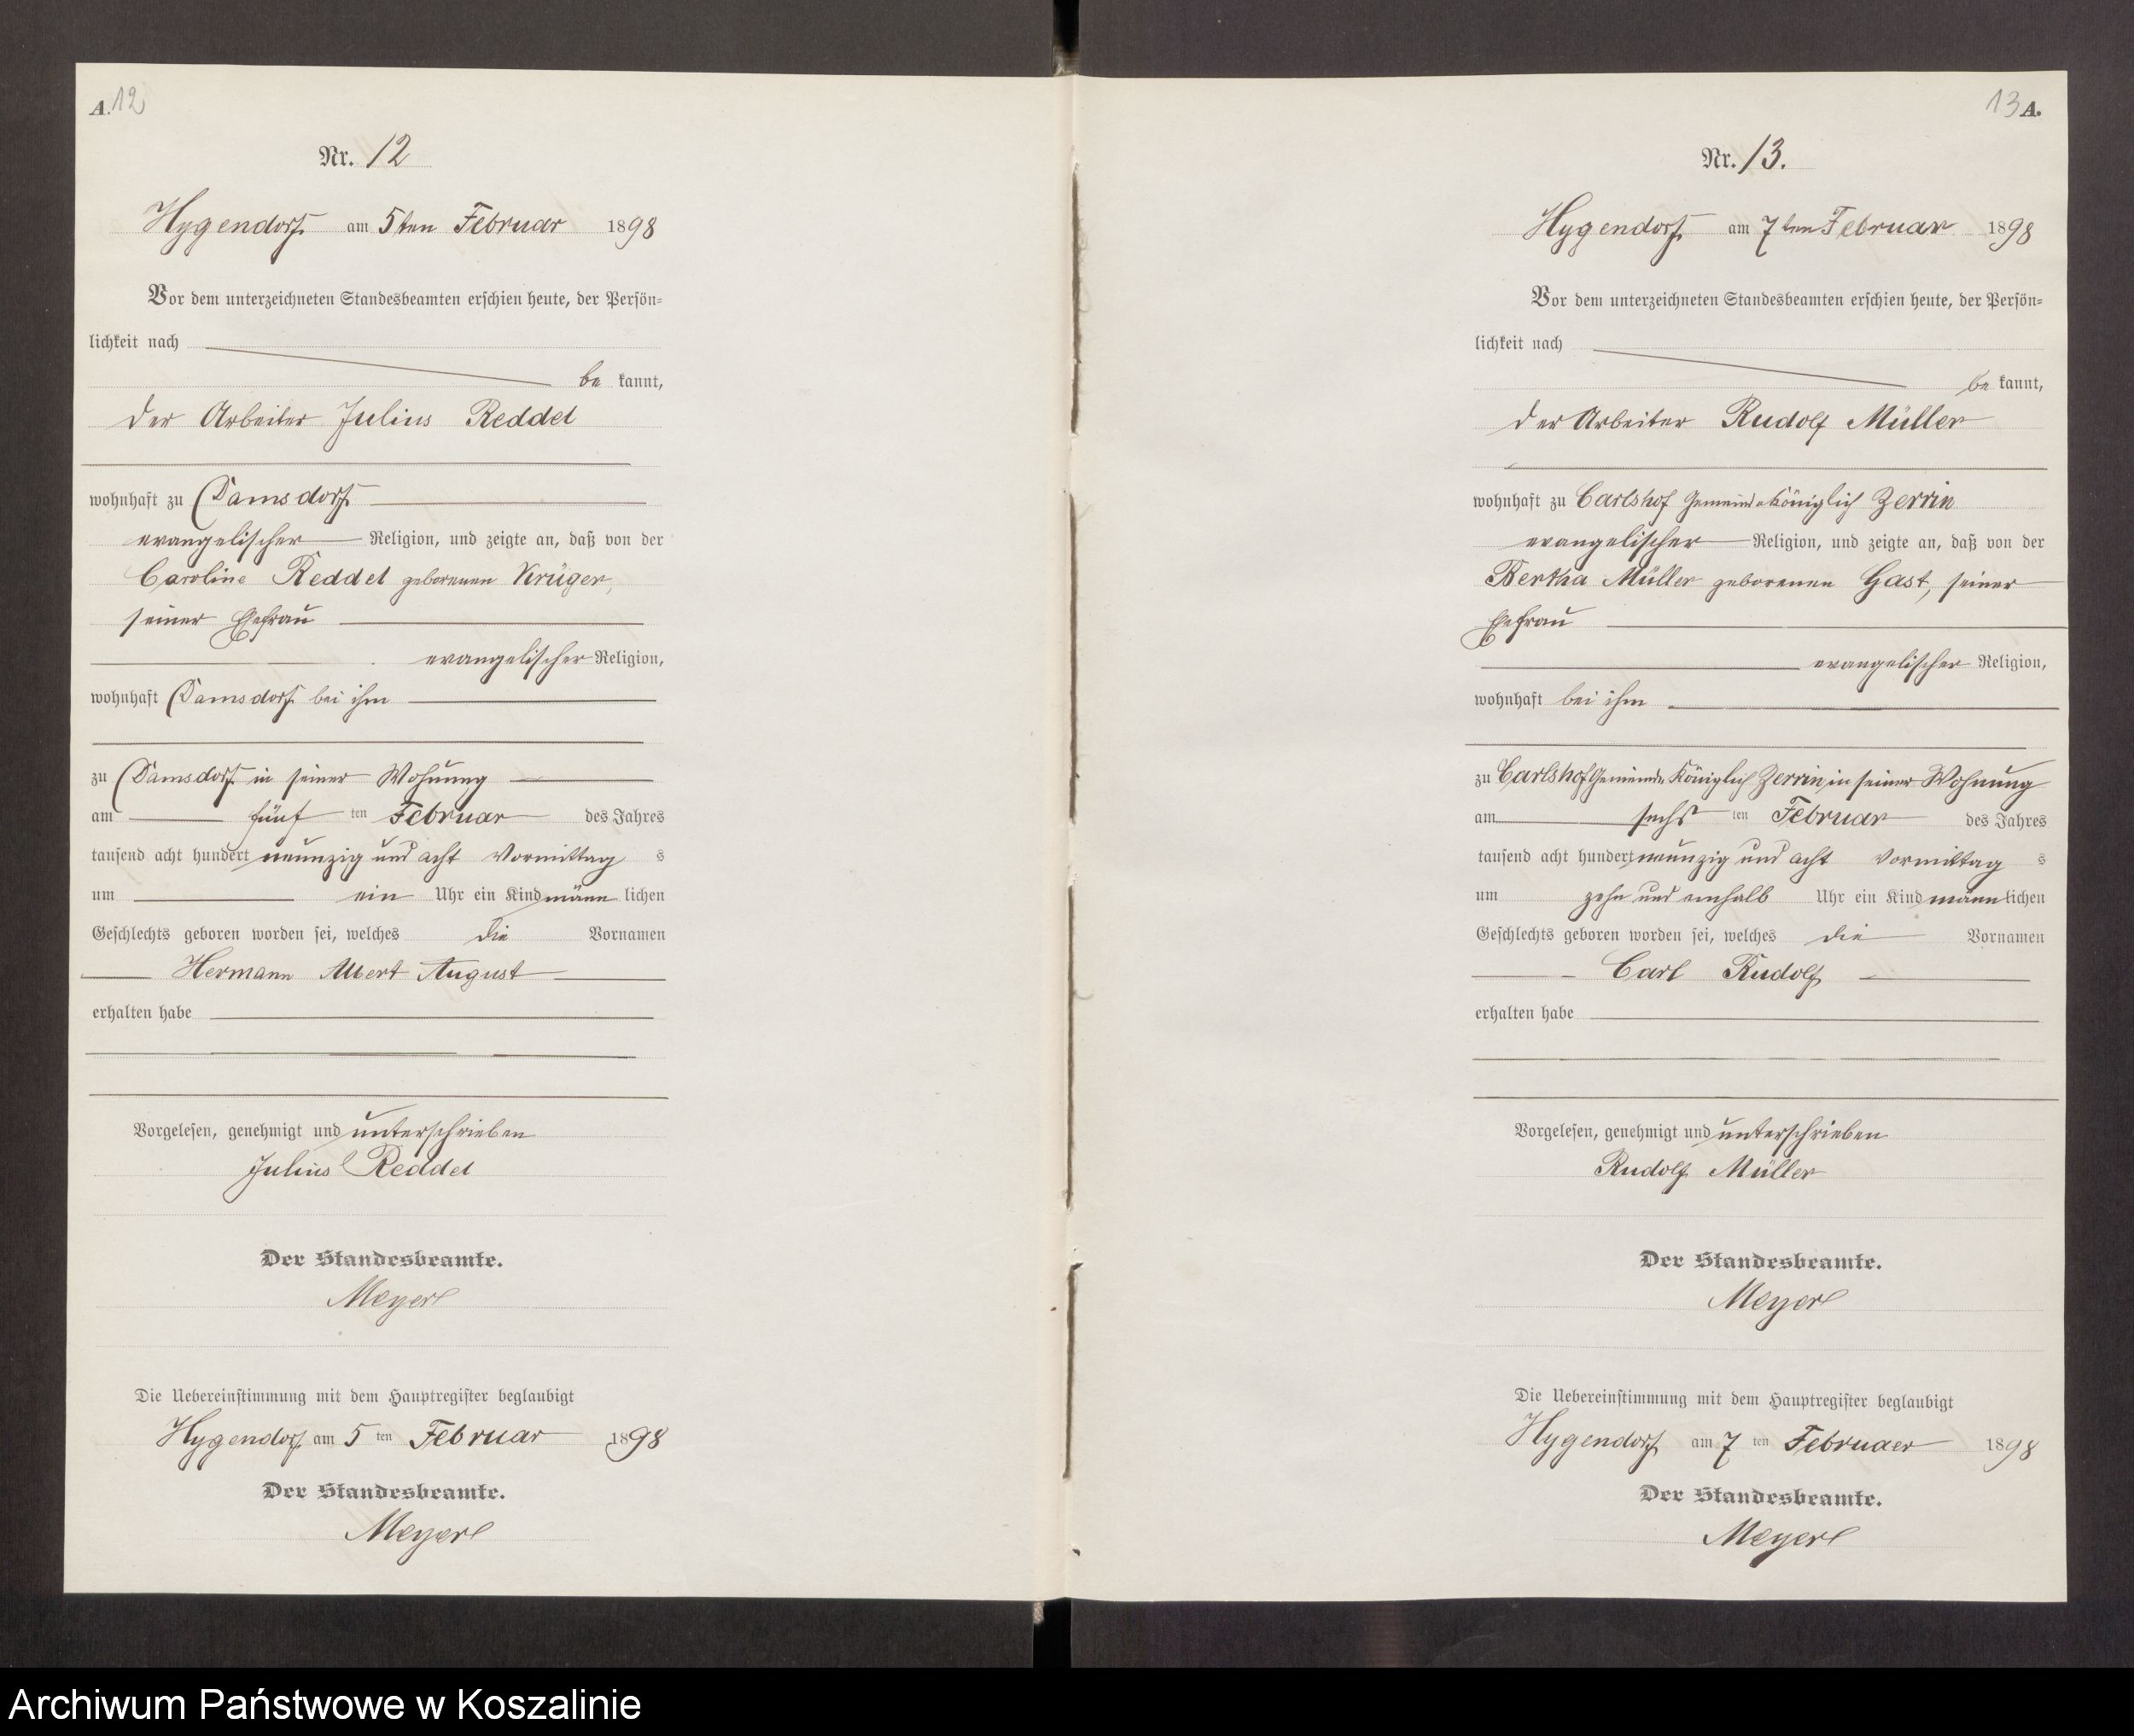 A. 12
Nr. 12
Hygendorf am 5ten Februar 1898
Vor dem unterzeichneten Standesbeamten erschien heute, der Persön-
lichkeit nach
be kannt,
der Arbeiter Julius Reddel
wohnhaft zu Damsdorf
evangelischer Religion, und zeigte an, daß von der
Caroline Reddel geborenen Krüger,
seiner Ehefrau
evangelischer Religion,
wohnhaft Damsdorf bei ihm
zu Damsdorf in seiner Wohnung
am fünf ten Februar des Jahres
tausend acht hundert neunzig und acht Vormittag s
um ein Uhr ein Kind männ lichen
Geschlechts geboren worden sei, welches die Vornamen
Hermann Albert August
erhalten habe
Vorgelesen, genehmigt und unterschrieben
Julius Reddel
Der Standesbeamte.
Meyer
Die Uebereinstimmung mit dem Hauptregister beglaubigt
Hygendorf am 5 ten Februar 1898
Der Standesbeamte.
Meyer
13 A.
Nr. 13.
Hygendorf am 7ten Februar 1898
Vor dem unterzeichneten Standesbeamten erschien heute, der Persön-
lichkeit nach
be kannt,
der Arbeiter Rudolf Müller
wohnhaft zu Carlshof Gemeinde Königlich Zerrin
evangelischer Religion, und zeigte an, daß von der
Bertha Müller geborenen Gast, seiner
Ehefrau
evangelischer Religion,
wohnhaft bei ihm
zu Carlshof Gemeinde Königlich Zerrin in seiner Wohnung
am sechs ten Februar des Jahres
tausend acht hundert neunzig und acht Vormittag s
um zehn und einhalb Uhr ein Kind männ lichen
Geschlechts geboren worden sei, welches die Vornamen
Carl Rudolf
erhalten habe
Vorgelesen, genehmigt und unterschrieben
Rudolf Müller
Der Standesbeamte.
Meyer
Die Uebereinstimmung mit dem Hauptregister beglaubigt
Hygendorf am 7 ten Februar 1898
Der Standesbeamte.
Meyer
Archiwum Państwowe w Koszalinie